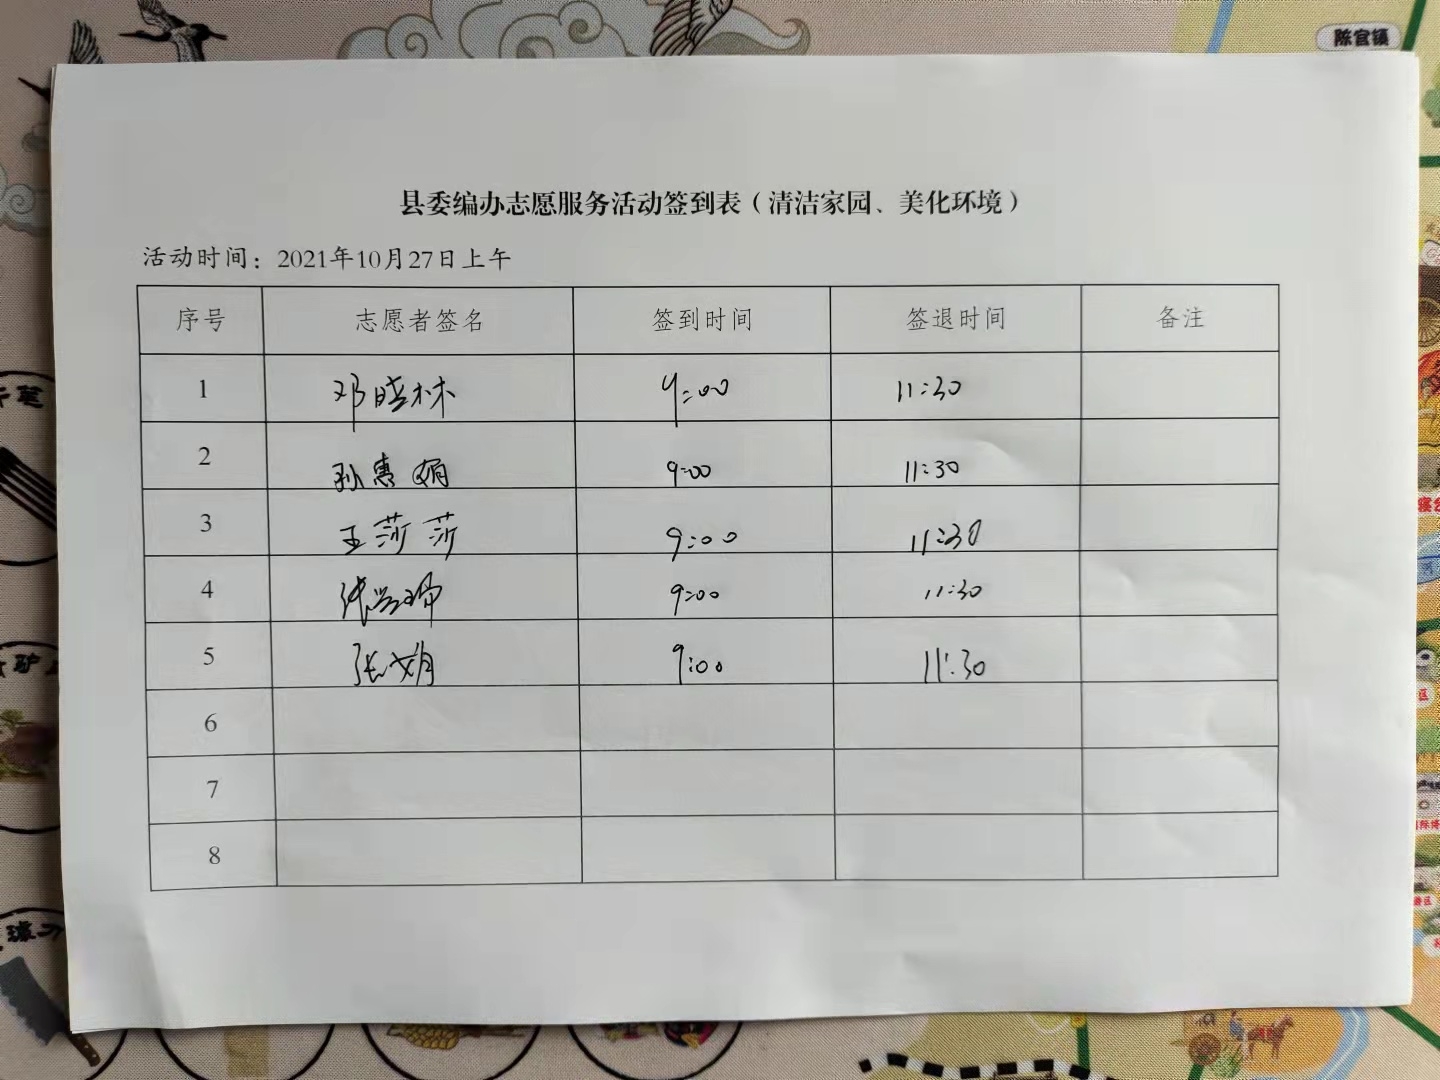 陈官镇
县委编办志愿服务活动签到表（清洁家园、美化环境）
活动时间：2021年10月27日上午
序号 志愿者签名 签到时间 签退时间 备注
1 邓晓林 9:00 11:30
2 孙惠娟 9:00 11:30
3 王莎莎 9:00 11:30
4 9:00 11:30
5 张娟 9:00 11:30
6
7
8